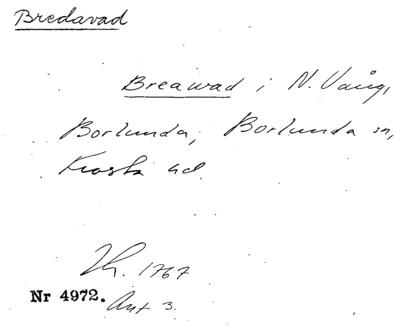 Bredavad
Breawad i N. Vång,
Borlunda, Borlunda sn,
Frosta hd.
Lh. 1767
Nr 4972. Akt 3.